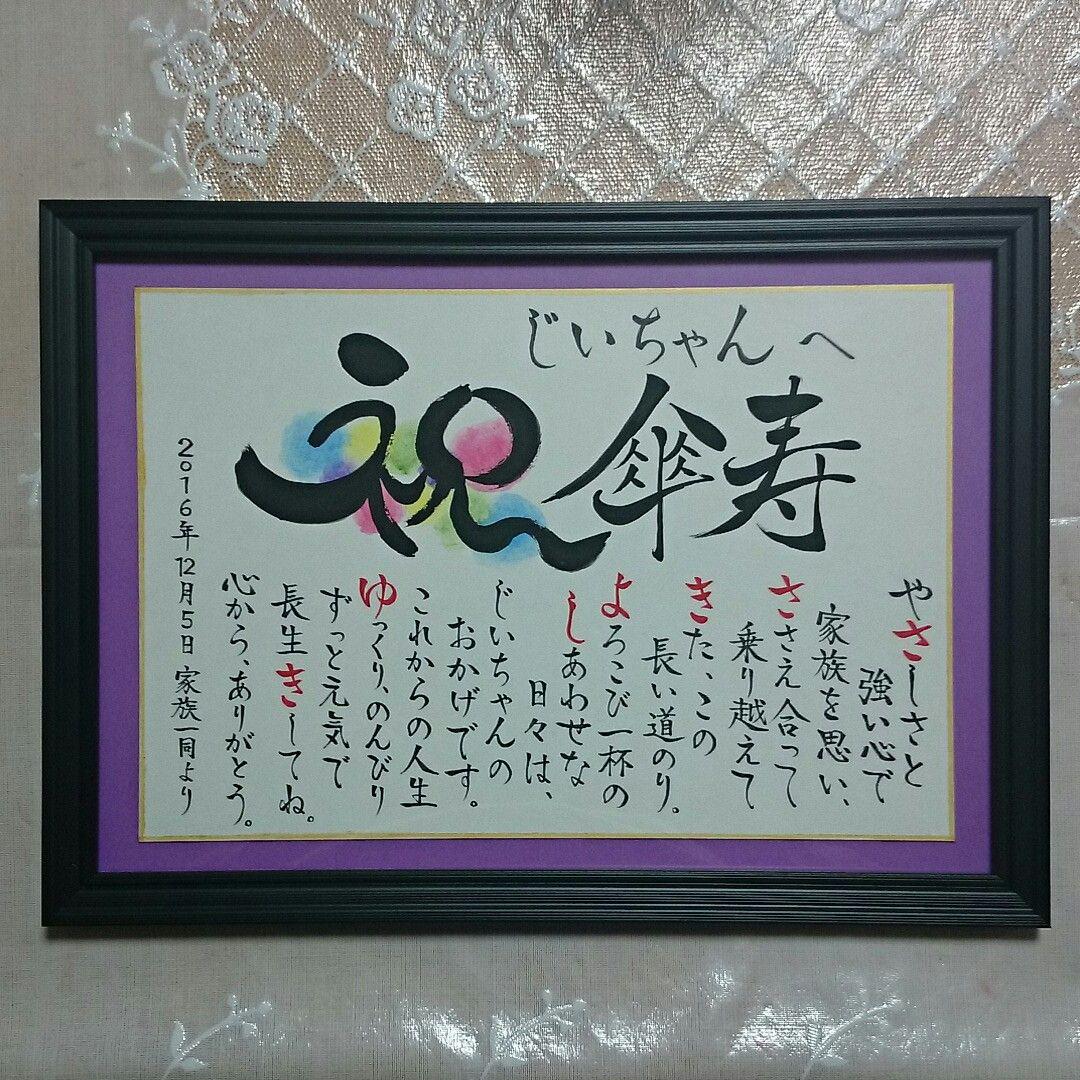 じいちゃんへ
祝傘寿
やさしさと
強い心で
家族を思い、
ささえ合って
乗り越えて
きた、この
長い道のり。
よろこび一杯の
しあわせな
日々は、
じいちゃんの
おかげです。
これからの人生
ゆっくり、のんびり
ずっと元気で
長生きしてね。
心から、ありがとう。
2016年12月5日 家族一同より